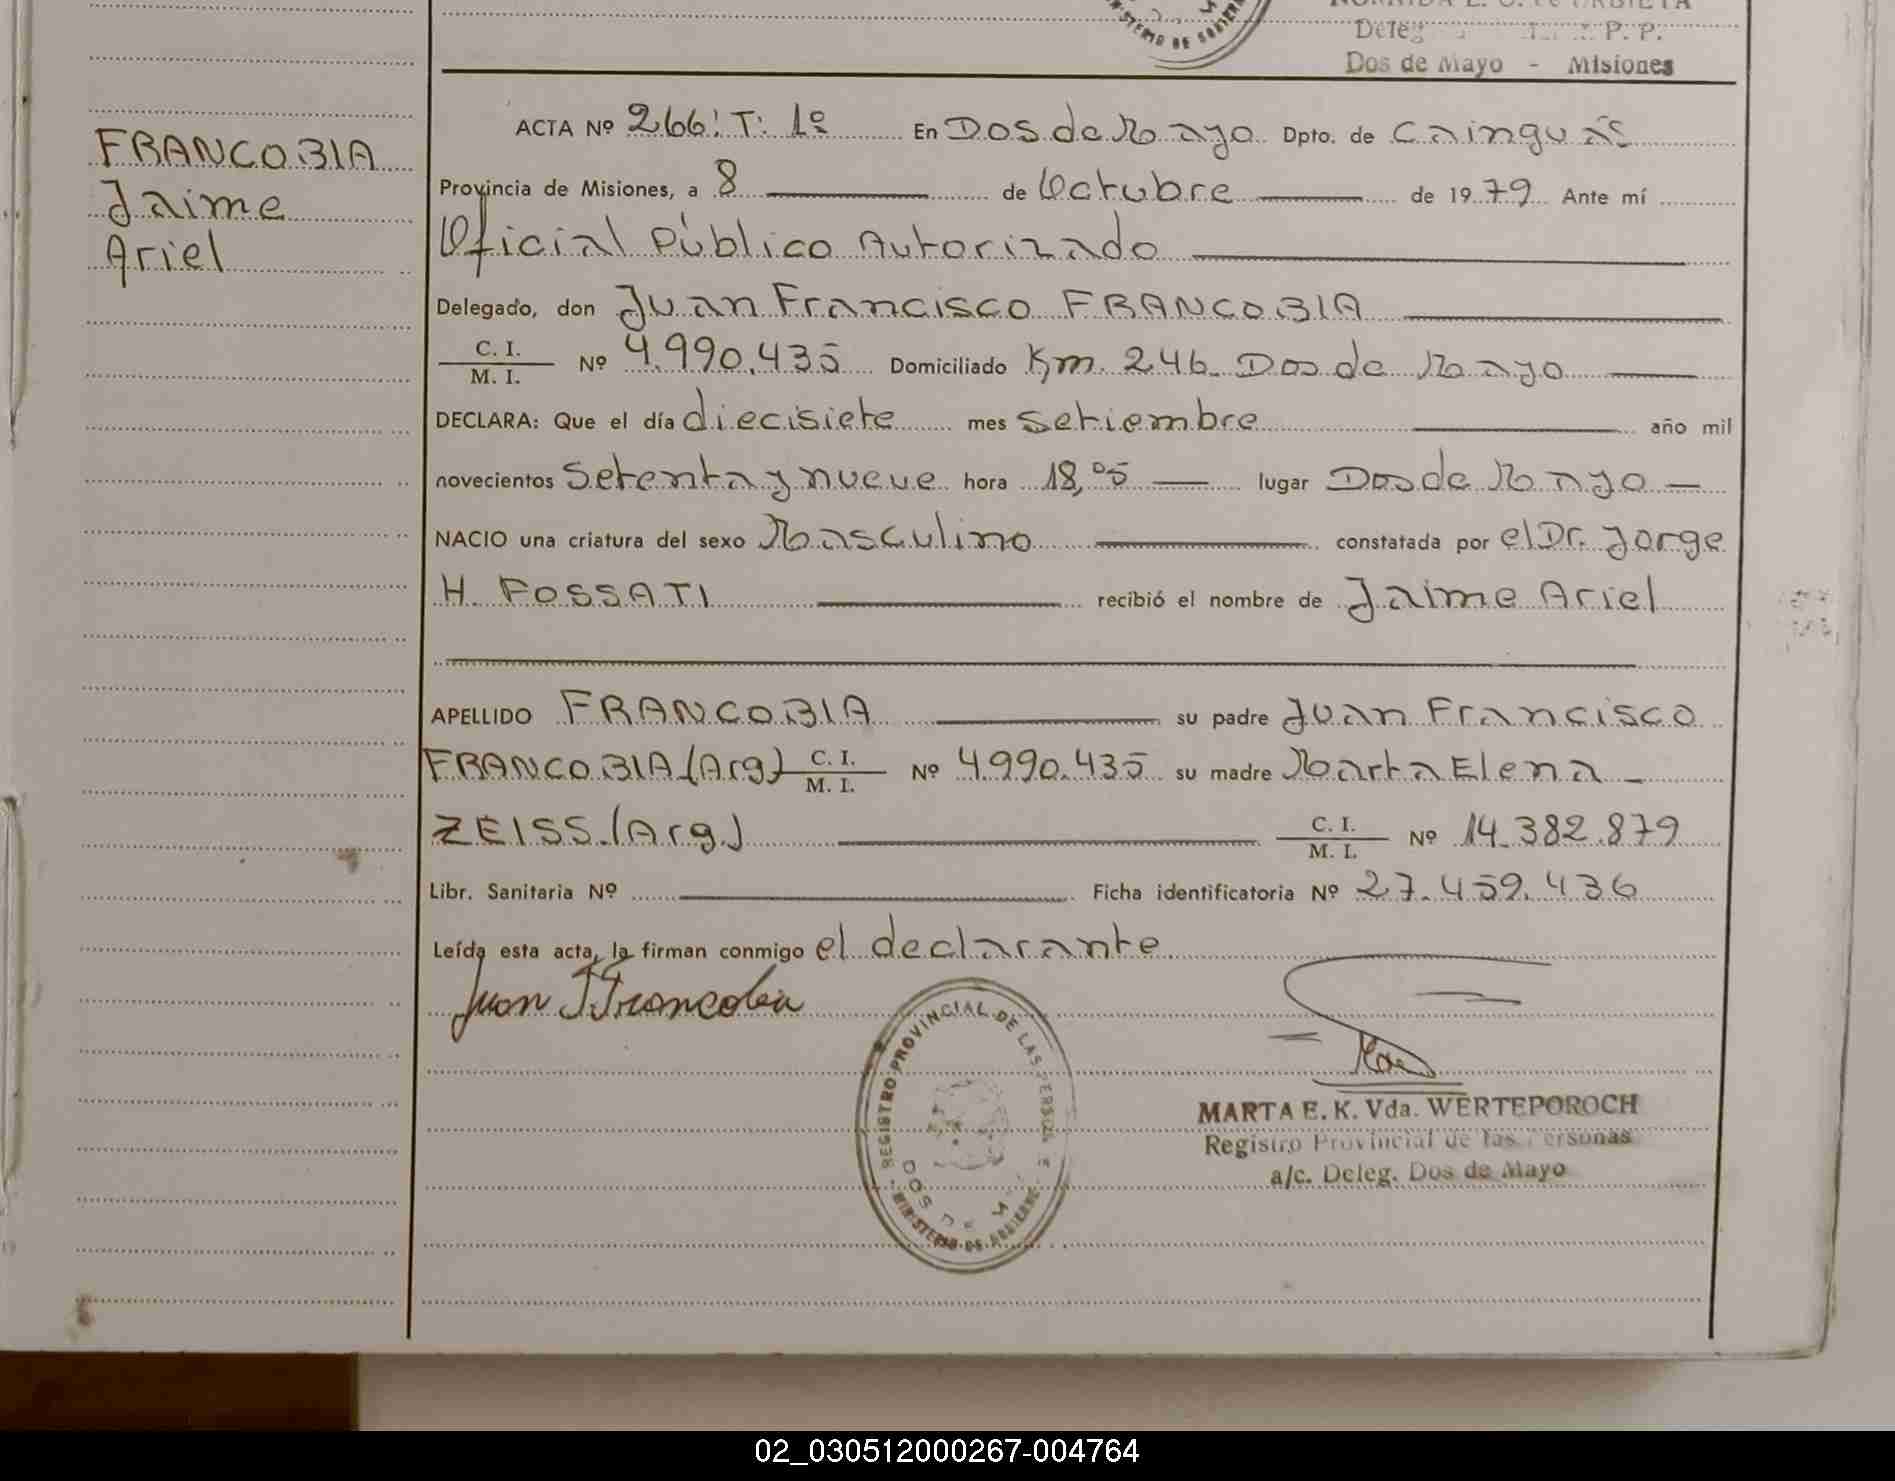 MINISTERIO DE GOBIERN
Deleg P. P.
Dos de Mayo - Misiones
FRANCOBIA
Jaime
Ariel
ACTA Nº 266! T: 1º En Dos de Mayo Dpto. de Cainguás
Provincia de Misiones, a 8 de Octubre de 1979 Ante mí
Oficial Público Autorizado
Delegado, don Juan Francisco FRANCOBIA
C. I. / M. I. Nº 4.990.435 Domiciliado Km. 246. Dos de Mayo
DECLARA: Que el día diecisiete mes setiembre año mil
novecientos setenta y nueve hora 18,05 lugar Dos de Mayo
NACIO una criatura del sexo Masculino constatada por el Dr. Jorge
H. FOSSATI recibió el nombre de Jaime Ariel
APELLIDO FRANCOBIA su padre Juan Francisco
FRANCOBIA (Arg) C. I. / M. I. Nº 4.990.435 su madre Marta Elena
ZEISS. (Arg.) C. I. / M. I. Nº 14.382.879
Libr. Sanitaria Nº Ficha identificatoria Nº 27.459.436
Leída esta acta, la firman conmigo el declarante
Juan F Francobia
REGISTRO PROVINCIAL DE LAS PERSONAS
DOS DE M
MINISTERIO DE GOBIERNO
MARTA E. K. Vda. WERTEPOROCH
Registro Provincial de las Personas
a/c. Deleg. Dos de Mayo
02_030512000267-004764